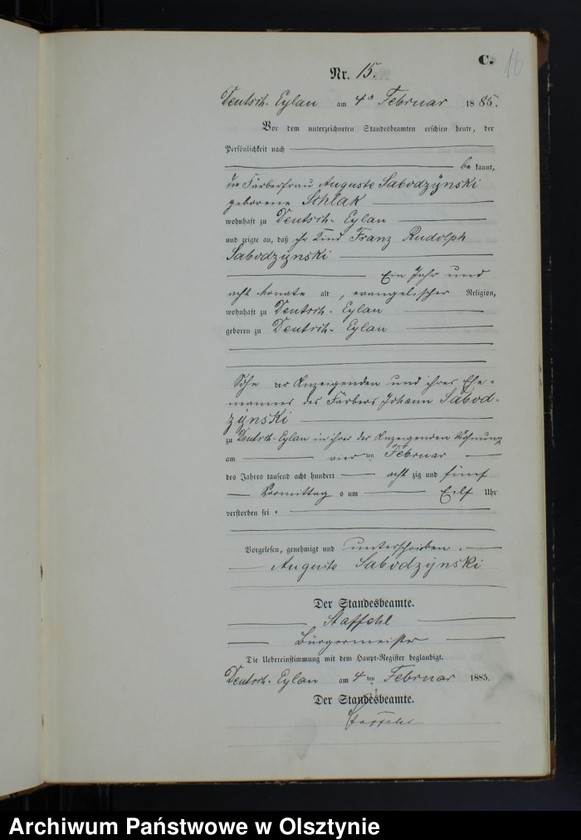 C.
16
Nr. 15.
Deutsch-Eylau am 4ten Februar 1885.
Vor dem unterzeichneten Standesbeamten erschien heute, der
Persönlichkeit nach
bekannt,
die Färberfrau Auguste Sabodzÿnski
geborene Schlak
wohnhaft zu Deutsch-Eylau
und zeigte an, daß ihr Kind Franz Rudolph
Sabodzÿnski
Ein Jahr und
acht Monate alt, evangelischer Religion,
wohnhaft zu Deutsch-Eylau
geboren zu Deutsch-Eylau
Sohn der Anzeigenden und ihres Ehe-
mannes des Färbers Johann Sabod-
zÿnski
zu Deutsch-Eylau in ihrer der Anzeigenden Wohnung
am vier ten Februar
des Jahres tausend acht hundert achtzig und fünf
Vormittags um Eilf Uhr
verstorben sei.
Vorgelesen, genehmigt und unterschrieben.
Auguste Sabodzÿnski
Der Standesbeamte.
Staffehl
Bürgermeister
Die Uebereinstimmung mit dem Haupt-Register beglaubigt.
Deutsch-Eylau am 4ten Februar 1885.
Der Standesbeamte.
Staffehl
Archiwum Państwowe w Olsztynie